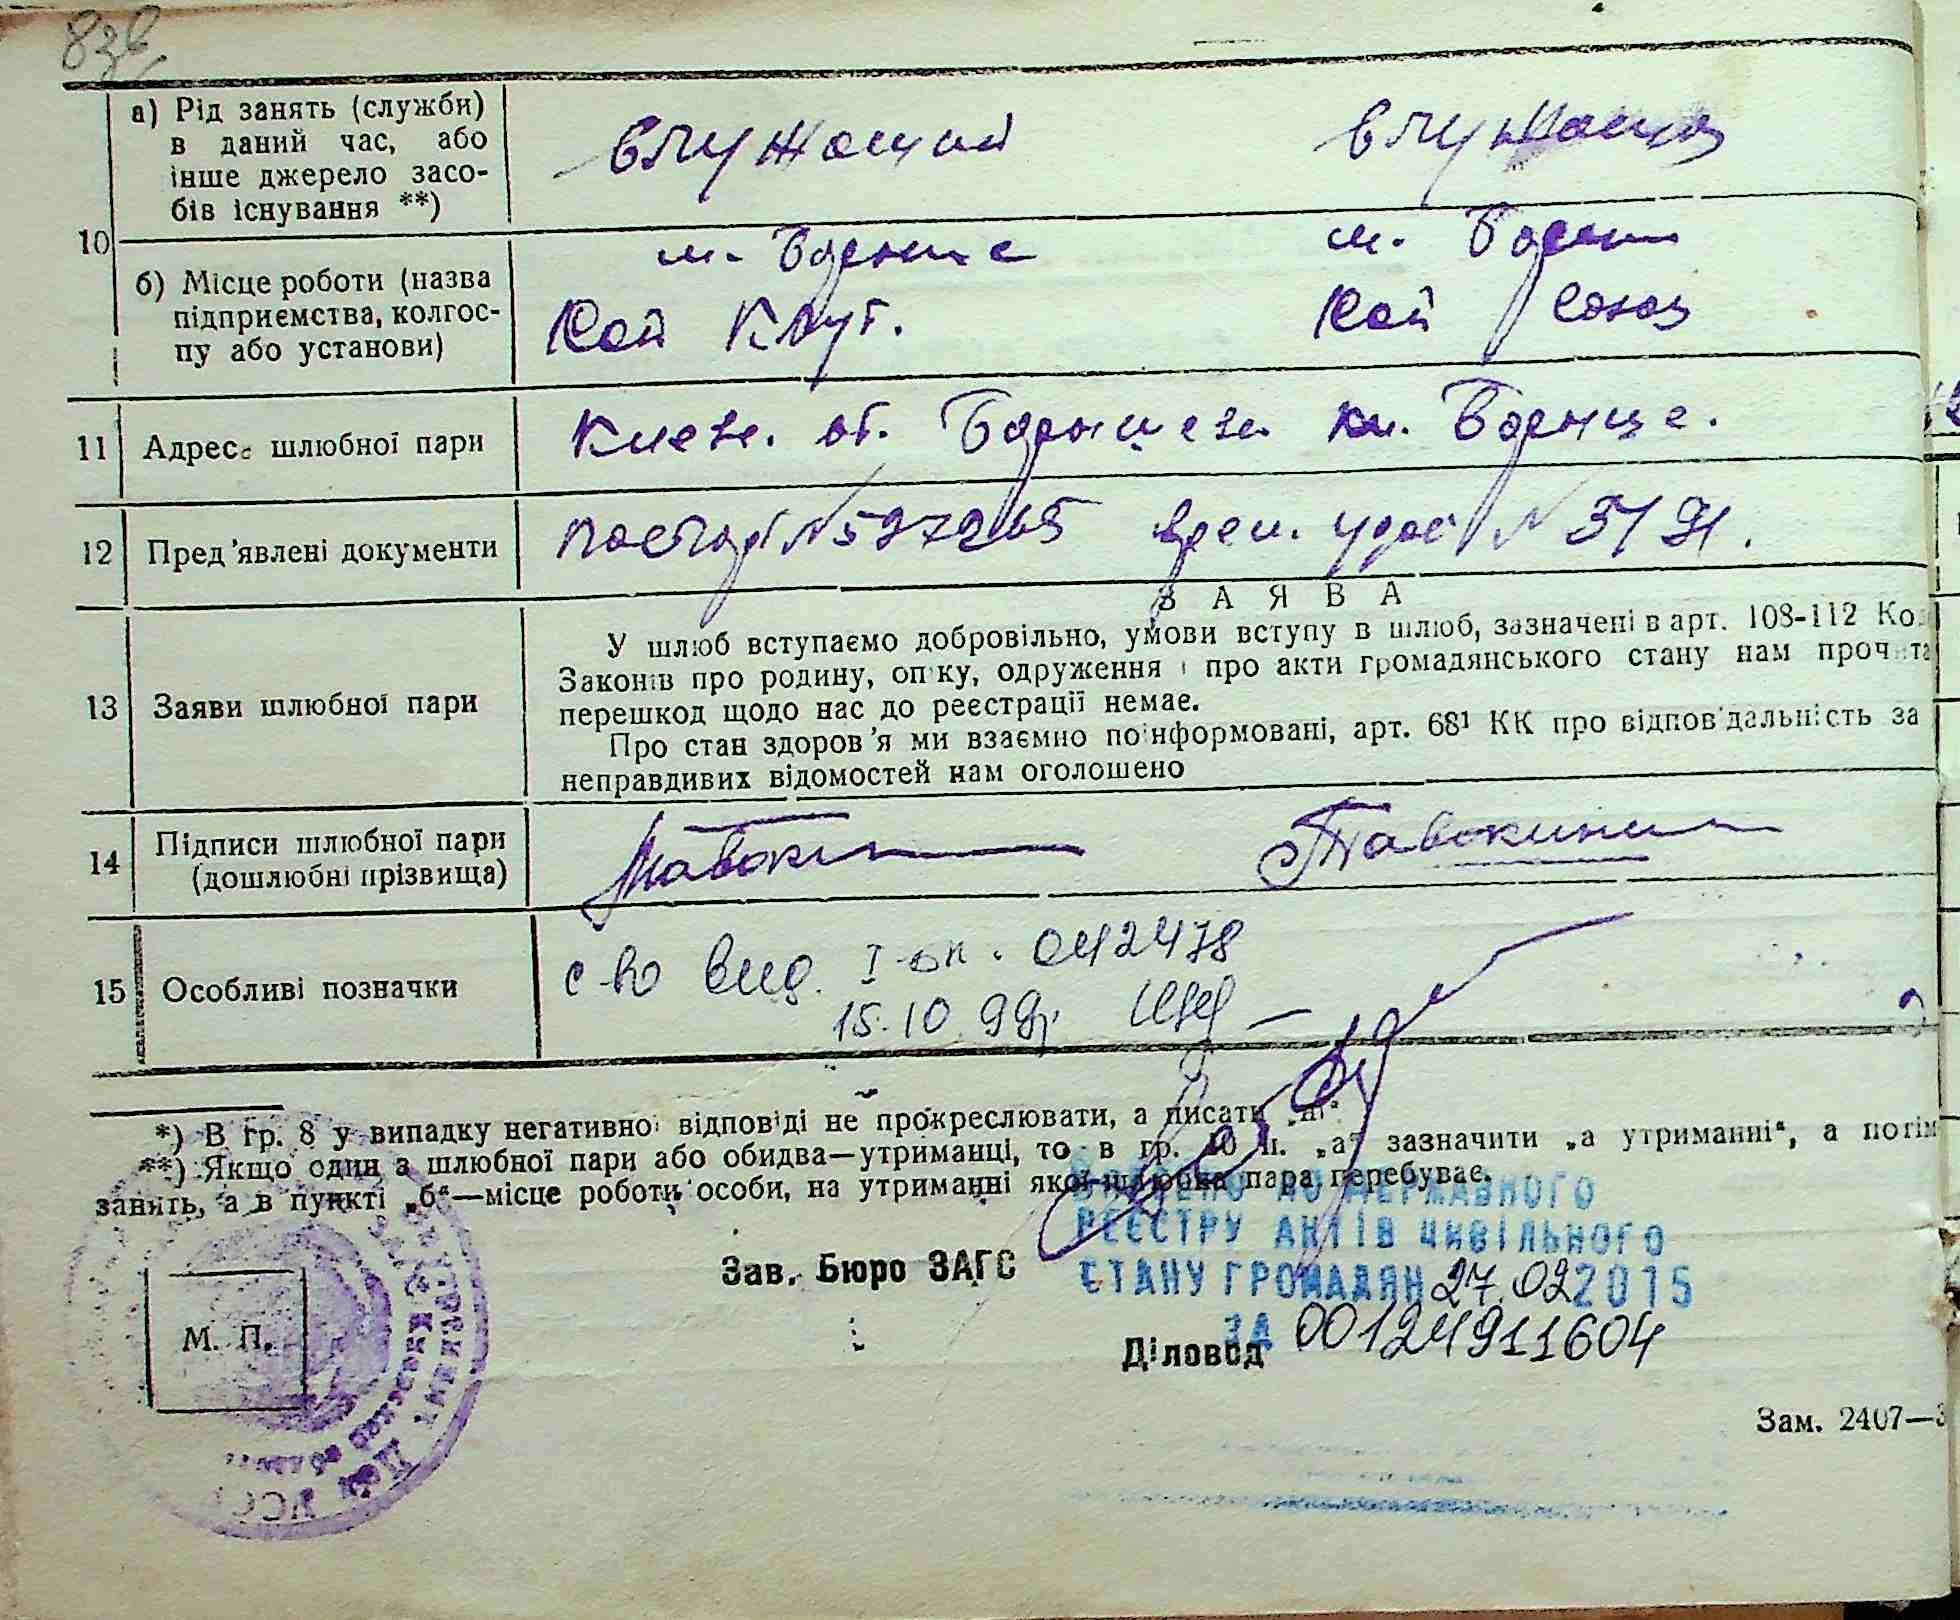 83в
10
а) Рід занять (служби)
в даний час, або
інше джерело засо-
бів існування **)
служащий
служащая
б) Місце роботи (назва
підприємства, колгос-
пу або установи)
м.
м.
Рай Клуб.
Рай союз
11 Адреса шлюбної пари
Киев. об.
12 Пред'явлені документи
паспорт № 579265 врем. удос № 5191.
13 Заяви шлюбної пари
ЗАЯВА
У шлюб вступаємо добровільно, умови вступу в шлюб, зазначені в арт. 108-112 Ко
Законів про родину, опіку, одруження і про акти громадянського стану нам прочита
перешкод щодо нас до реєстрації немає.
Про стан здоров'я ми взаємно поінформовані, арт. 68¹ КК про відповідальність за
неправдивих відомостей нам оголошено
14 Підписи шлюбної пари
(дошлюбні прізвища)
15 Особливі позначки
с-во выд. I-ЭК. 042478
15.10.99р.
*) В гр. 8 у випадку негативної відповіді не прокреслювати, а писати „ні“.
**) Якщо один з шлюбної пари або обидва—утриманці, то в гр. 10 п. „а“ зазначити „а утриманні“, а потім
занять, а в пункті „б“—місце роботи особи, на утриманні якої шлюбна пара перебуває.
ВНЕСЕНО ДО ДЕРЖАВНОГО
РЕЄСТРУ АКТІВ ЦИВІЛЬНОГО
СТАНУ ГРОМАДЯН 27.02 2015
ЗА 001249911604
Зав. Бюро ЗАГС
М. П.
Діловод
Зам. 2407—3